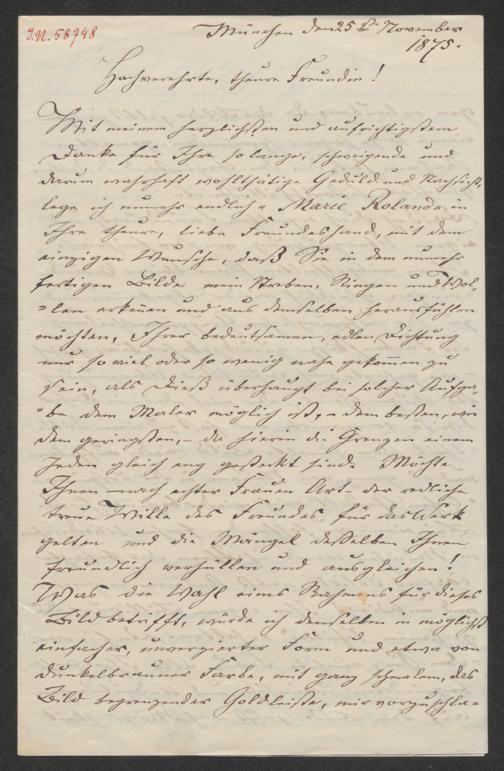 J.N. 58748
München den 25t November
1875.
Hochverehrte, theure Freundin!
Mit meinem herzlichsten und aufrichtigsten
Danke für Ihre so lange, schweigende und
darum wahrhaft wohlthätige Geduld und Nachsicht,
lege ich nunmehr endlich „Marie Roland" in
Ihre theure, liebe Freundeshand, mit dem
einzigen Wunsche, daß Sie in dem nunmehr
fertigen Bilde mein Streben, Ringen und Wol-
-len erkennen und aus demselben herausfühlen
möchten, Ihrer bedeutsamen, edlen Dichtung
nur so viel oder so wenig nahe gekommen zu
sein, als dieß überhaupt bei solcher Aufga-
-be dem Maler möglich ist, – dem besten, wie
dem geringsten, – da hierin die Grenzen einem
Jeden gleich eng gesteckt sind. Möchte
Ihnen – nach echter Frauen Art – der redliche
treue Wille des Freundes für das Werk
gelten und die Mängel desselben Ihnen
freundlich verhüllen und ausgleichen!
Was die Wahl eines Rahmens für dieses
Bild betrifft, würde ich denselben in möglichst
einfacher, unverzierter Form und etwa von
dunkelbrauner Farbe, mit ganz schmalem, das
Bild begrenzender Goldleiste, mir vorzuschla-